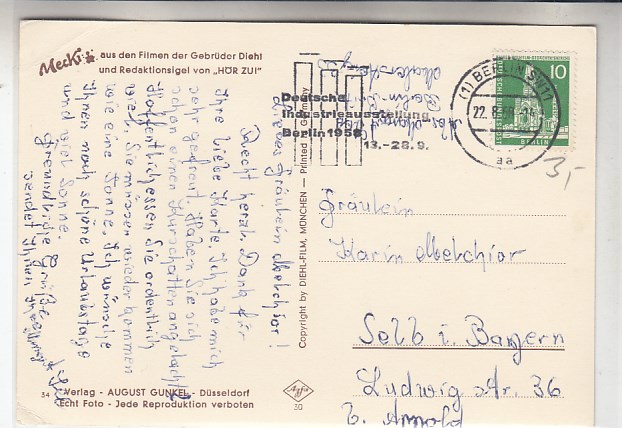 Mecki aus den Filmen der Gebrüder Diehl
und Redaktionsigel von „HÖR ZU!"
Liebes Fräulein Melchior!
Recht herzl. Dank für
Ihre liebe Karte. Ich habe mich
sehr gefreut. Haben Sie sich
schon einen Kurschatten angelacht?
Hoffentlich essen Sie ordentlich
viel. Sie müssen wieder kommen
wie eine Sonne. Ich wünsche
Ihnen noch schöne Urlaubstage
und viel Sonne.
Freundliche Grüße
sendet Ihnen
Copyright by DIEHL-FILM, MÜNCHEN — Printed in Germany
Deutsche
Industrieausstellung
Berlin 1958
13.-28.9.
(1) BERLIN SW 11
22. 8. 58
aa
10
BERLIN
3,-
Fräulein
Karin Melchior
Selb i. Bayern
Ludwig str. 36
34 Verlag - AUGUST GUNKEL - Düsseldorf
Echt Foto - Jede Reproduktion verboten
Agfa
30